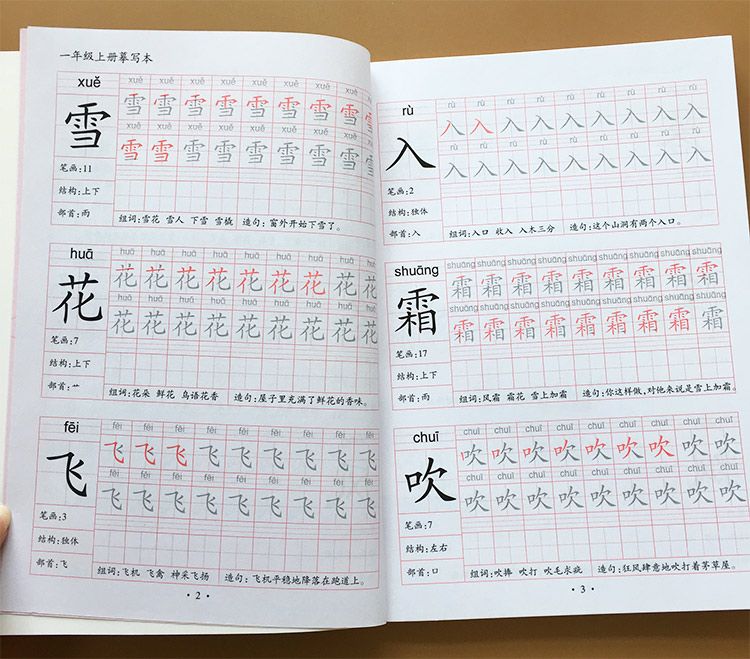 一年级上册摹写本
xuě
xuě xuě xuě xuě xuě xuě xuě xuě
雪 雪 雪 雪 雪 雪 雪 雪 雪
xuě xuě xuě xuě xuě xuě xuě xuě
雪 雪 雪 雪 雪 雪 雪 雪
笔画:11
结构:上下
部首:雨
组词:雪花 雪人 下雪 雪橇 造句:窗外开始下雪了。
huā
huā huā huā huā huā huā huā huā huā
花 花 花 花 花 花 花 花 花 花
huā huā huā huā huā huā huā huā huā
花 花 花 花 花 花 花 花 花
笔画:7
结构:上下
部首:艹
组词:花朵 鲜花 鸟语花香 造句:屋子里充满了鲜花的香味。
fēi
fēi fēi fēi fēi fēi fēi fēi fēi fēi
飞 飞 飞 飞 飞 飞 飞 飞 飞 飞
fēi fēi fēi fēi fēi fēi fēi fēi fēi
飞 飞 飞 飞 飞 飞 飞 飞 飞
笔画:3
结构:独体
部首:飞
组词:飞机 飞禽 神采飞扬 造句:飞机平稳地降落在跑道上。
·2·
rù
rù rù rù rù rù rù rù rù rù
入 入 入 入 入 入 入 入 入 入
rù rù rù rù rù rù rù rù rù
入 入 入 入 入 入 入 入 入
笔画:2
结构:独体
部首:入
组词:入口 收入 入木三分 造句:这个山洞有两个入口。
shuāng
shuāng shuāng shuāng shuāng shuāng shuāng shuāng shuāng shuāng
霜 霜 霜 霜 霜 霜 霜 霜 霜 霜
shuāng shuāng shuāng shuāng shuāng shuāng shuāng shuāng shuāng
霜 霜 霜 霜 霜 霜 霜 霜 霜
笔画:17
结构:上下
部首:雨
组词:风霜 霜花 雪上加霜 造句:你这样做,对他来说是雪上加霜。
chuī
chuī chuī chuī chuī chuī chuī chuī chuī chuī
吹 吹 吹 吹 吹 吹 吹 吹 吹 吹
chuī chuī chuī chuī chuī chuī chuī chuī chuī
吹 吹 吹 吹 吹 吹 吹 吹 吹
笔画:7
结构:左右
部首:口
组词:吹捧 吹打 吹毛求疵 造句:狂风肆意地吹打着茅草屋。
·3·